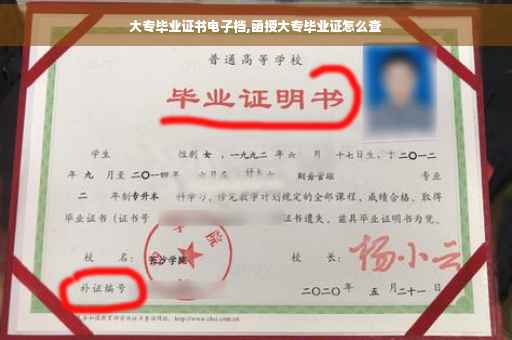 大专毕业证书电子档,函授大专毕业证怎么查
普通高等学校
毕业证明书
学生 性别 女 ，一九九二年 六 月 十七日生，于 二〇一二
年 九 月至 二〇一四年 六月在 财务管理 专业
二 年制 专升本 科学习，修完教学计划规定的全部课程，成绩合格，取得
毕业证书（证书号 证书遗失，兹具毕业证明书为凭。
校 名： 长沙学院 校 长： 杨小云
学院
补证编号
二〇二〇年 五 月 二十一日
http://www.chsi.com.cn